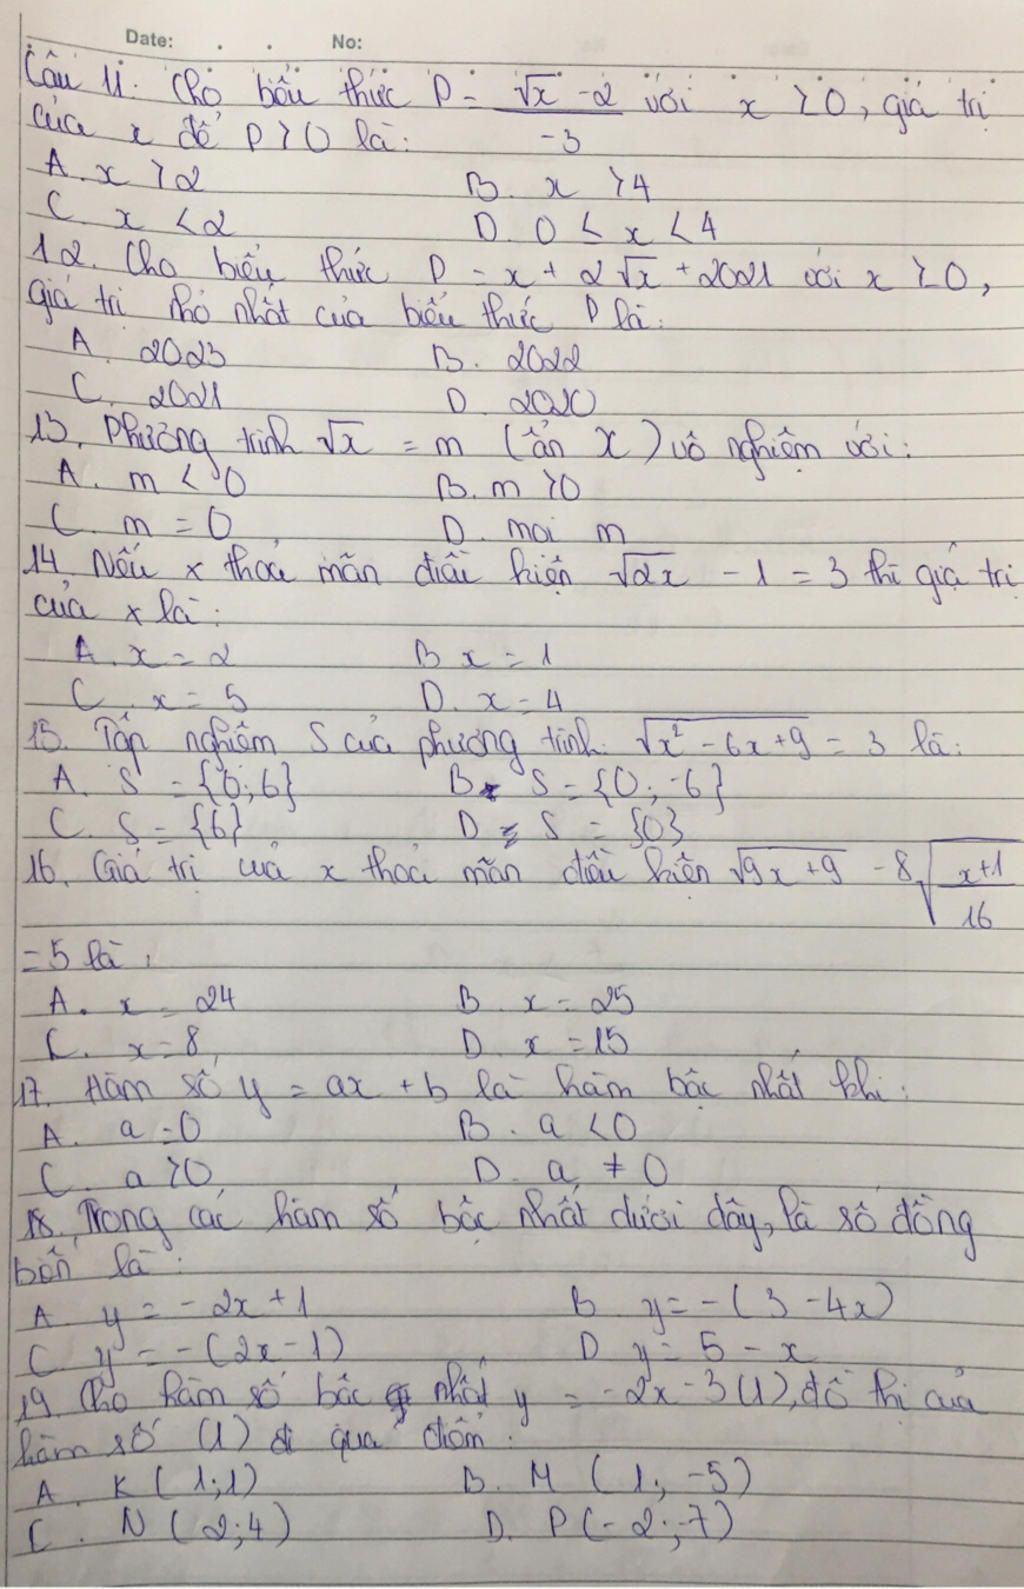 Date: . . No:
Câu 11. Cho biểu thức P = \frac{\sqrt{x} - 2}{-3} với x > 0, giá trị
của x để P > 0 là:
A. x > 2 B. x > 4
C. x < 2 D. 0 < x < 4
12. Cho biểu thức P = x + 2√x + 2021 với x ≥ 0,
giá trị nhỏ nhất của biểu thức P là:
A. 2023 B. 2022
C. 2021 D. 2020
13. Phương trình √x = m (ẩn x) vô nghiệm với:
A. m < 0 B. m > 0
C. m = 0 D. mọi m
14. Nếu x thoả mãn điều kiện √2x - 1 = 3 thì giá trị
của x là:
A. x = 2 B x = 1
C. x = 5 D. x = 4
15. Tập nghiệm S của phương trình: \sqrt{x² - 6x + 9} = 3 là:
A. S = {0; 6} B. S = {0; -6}
C. S = {6} D. S = {0}
16. Giá trị của x thoả mãn điều kiện \sqrt{9x + 9} - 8\sqrt{\frac{x+1}{16}}
= 5 là:
A. x = 24 B. x = 25
C. x = 8 D. x = 15
17. Hàm số y = ax + b là hàm bậc nhất khi:
A. a = 0 B. a < 0
C. a > 0 D. a ≠ 0
18. Trong các hàm số bậc nhất dưới đây, là số đồng
biến là:
A. y = -2x + 1 B y = -(3 - 4x)
C y = -(2x - 1) D y = 5 - x
19. Cho hàm số bậc nhất y = -2x - 3 (1), đồ thị của
hàm số (1) đi qua điểm:
A. K (1; 1) B. M (1; -5)
C. N (2; 4) D. P (-2; -7)